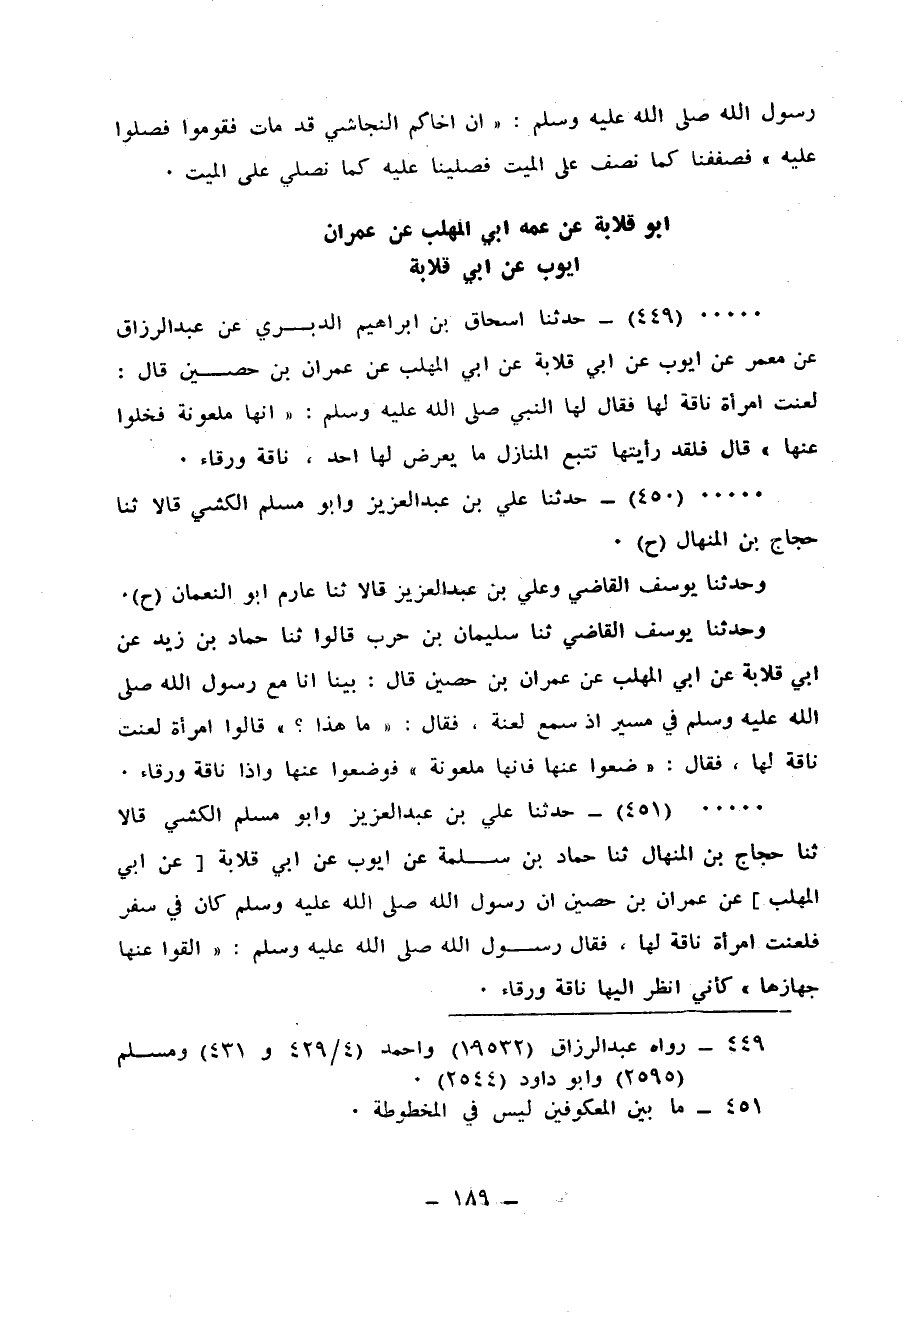 رسول الله صلى الله عليه وسلم : « ان اخاكم النجاشي قد مات فقوموا فصلوا
عليه » فصففنا كما نصف على الميت فصلينا عليه كما نصلي على الميت ٠
ابو قلابة عن عمه ابي المهلب عن عمران
ايوب عن ابي قلابة
٠٠٠٠٠ (٤٤٩) ــ حدثنا اسحاق بن ابراهيم الدبـــري عن عبدالرزاق
عن معمر عن ايوب عن ابي قلابة عن ابي المهلب عن عمران بن حصـــين قال :
لعنت امرأة ناقة لها فقال لها النبي صلى الله عليه وسلم : « انها ملعونة فخلوا
عنها » قال فلقد رأيتها تتبع المنازل ما يعرض لها احد ، ناقة ورقاء ٠
٠٠٠٠٠ (٤٥٠) ــ حدثنا علي بن عبدالعزيز وابو مسلم الكشي قالا ثنا
حجاج بن المنهال (ح) ٠
وحدثنا يوسف القاضي وعلي بن عبدالعزيز قالا ثنا عارم ابو النعمان (ح)٠
وحدثنا يوسف القاضي ثنا سليمان بن حرب قالوا ثنا حماد بن زيد عن
ابي قلابة عن ابي المهلب عن عمران بن حصين قال : بينا انا مع رسول الله صلى
الله عليه وسلم في مسير اذ سمع لعنة ، فقال : « ما هذا ؟ » قالوا امرأة لعنت
ناقة لها ، فقال : « ضعوا عنها فانها ملعونة » فوضعوا عنها واذا ناقة ورقاء ٠
٠٠٠٠٠ (٤٥١) ــ حدثنا علي بن عبدالعزيز وابو مسلم الكشي قالا
ثنا حجاج بن المنهال ثنا حماد بن ســـلمة عن ايوب عن ابي قلابة [ عن ابي
المهلب ] عن عمران بن حصين ان رسول الله صلى الله عليه وسلم كان في سفر
فلعنت امرأة ناقة لها ، فقال رســـول الله صلى الله عليه وسلم : « القوا عنها
جهازها » كأني انظر اليها ناقة ورقاء ٠
٤٤٩ ــ رواه عبدالرزاق (١٩٥٣٢) واحمد (٤/ ٤٢٩ و ٤٣١) ومســلم
(٢٥٩٥) وابو داود (٢٥٤٤) ٠
٤٥١ ــ ما بين المعكوفين ليس في المخطوطة ٠
ــ ١٨٩ ــ